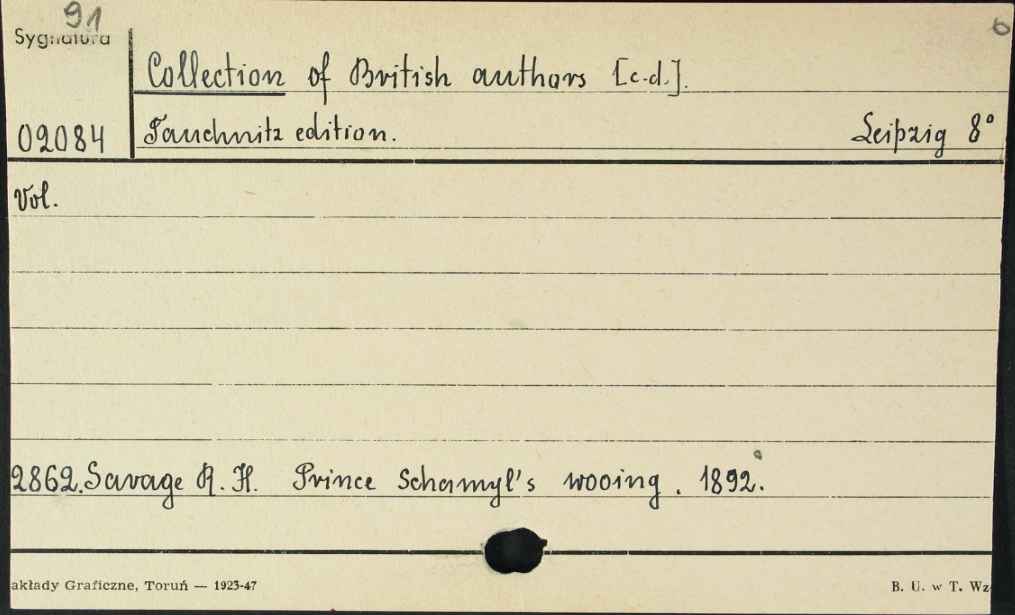 91
6
Sygnatura
Collection of British authors [c.d.].
02084
Tauchnitz edition. Leipzig 8°
Vol.
2862. Savage R. H. Prince Schamyl's wooing. 1892.
akłady Graficzne, Toruń — 1923-47
B. U. w T. Wz